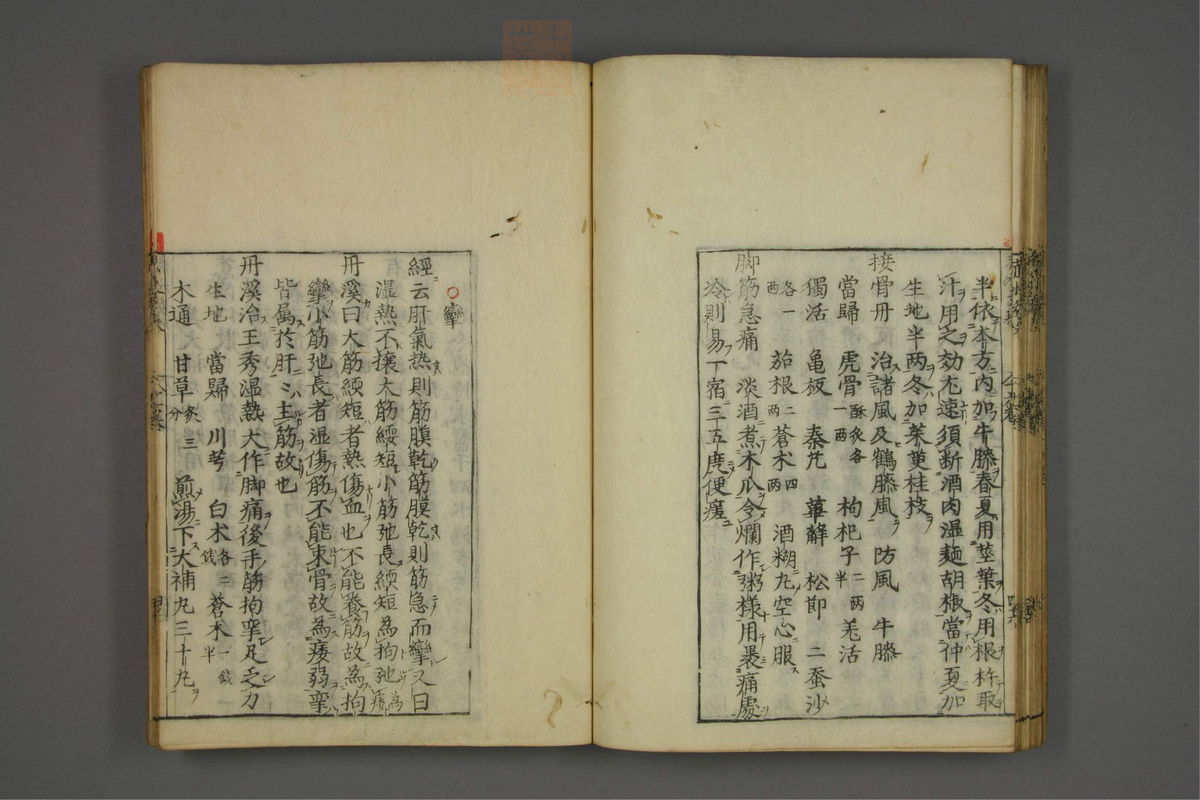 半依本方内加牛膝春夏用莖葉冬用根杵取
汁用之効尤速須断酒肉湿麵胡椒當仲夏加
生地半两冬加茱萸桂枝
接骨丹 治諸風及鶴膝風 防風 牛膝
當歸 虎骨酥炙各一两 枸杞子二两半 羌活
獨活 亀板 秦艽 萆薢 松節 二蚕沙
各一两 茄根二两 蒼术四两 酒糊丸空心服
脚筋急痛 淡酒煮木瓜令爛作粥様用褁痛處
冷則易一宿三五度便瘥
攣
經云肝氣热則筋膜乾筋膜乾則筋急而攣又曰
湿熱不攘大筋緛短小筋弛長緛短為拘弛長為痿
丹溪曰大筋緛短者熱傷血也不能養筋故為拘
攣小筋弛長者湿傷筋不能束骨故為痿弱攣
皆属於肝〻主筋故也
丹溪治王秀湿熱大作脚痛後手筋拘挛足乏力
生地 當歸 川芎 白术各二錢 蒼术一錢半
木通 甘草炙三分 煎湯下大補丸三十丸